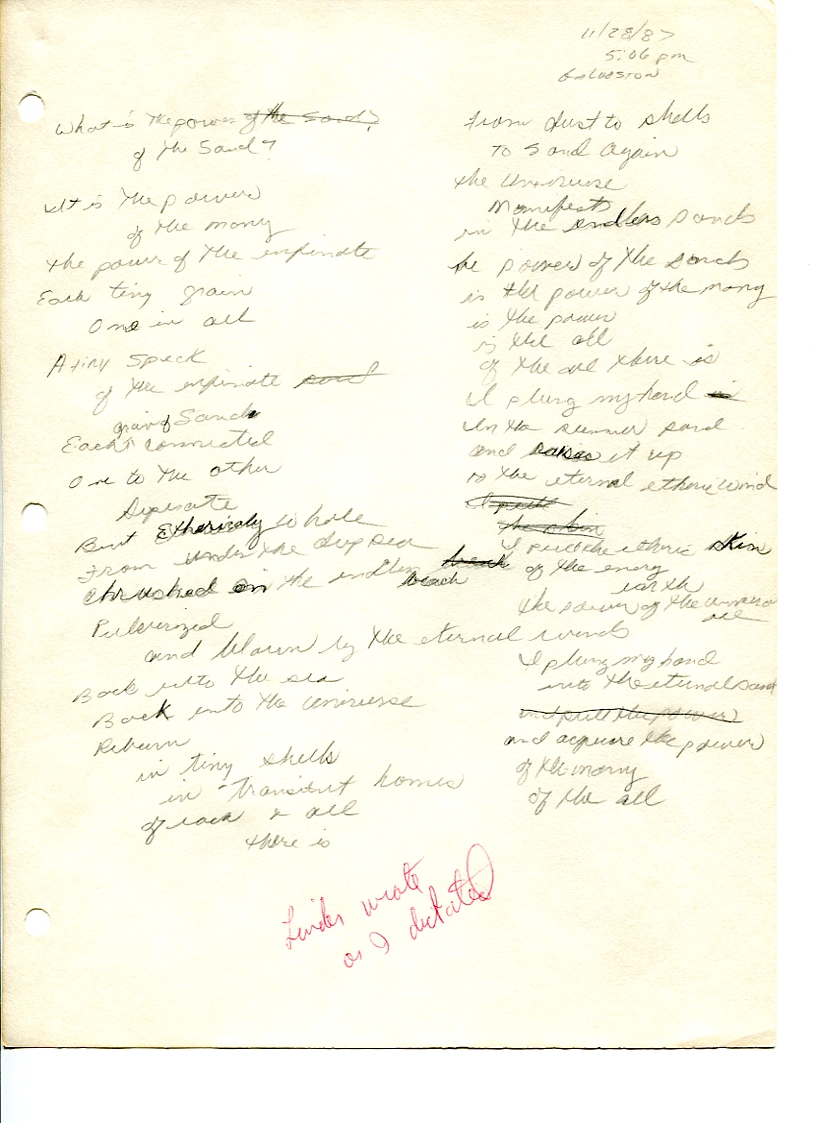 11/28/87
5:06 pm
Galveston
What is the power of the Sand?
of the Sand?
It is the power
of the many
the power of the infinate
Each tiny grain
One in all
A tiny Speck
of the infinate
grain of Sand
Each connected
One to the other
Seperate
But Ethericaly Whole
From under the deep sea
Chrushed on the endless beach
beach
Pulverized
and blown by the eternal winds
Back into the sea
Back into the Universe
Reborn
in tiny shells
in transitent homes
of each & all
there is
From dust to shells
To Sand Again
the Universe
Manifests
in the endless sands
he power of the sands
is the power of the many
is the power
is the all
of the all there is
I plung my hand in
In the summer sand
and raise it up
to the eternal etheric wind
I pull
the skin
I pull the etheric skin
of the energy
earth
the power of the universe
all
I plung my hand
into the eternal sand
and pull the power
and acquire the power
of the many
of the all
Linda wrote
as I dictated